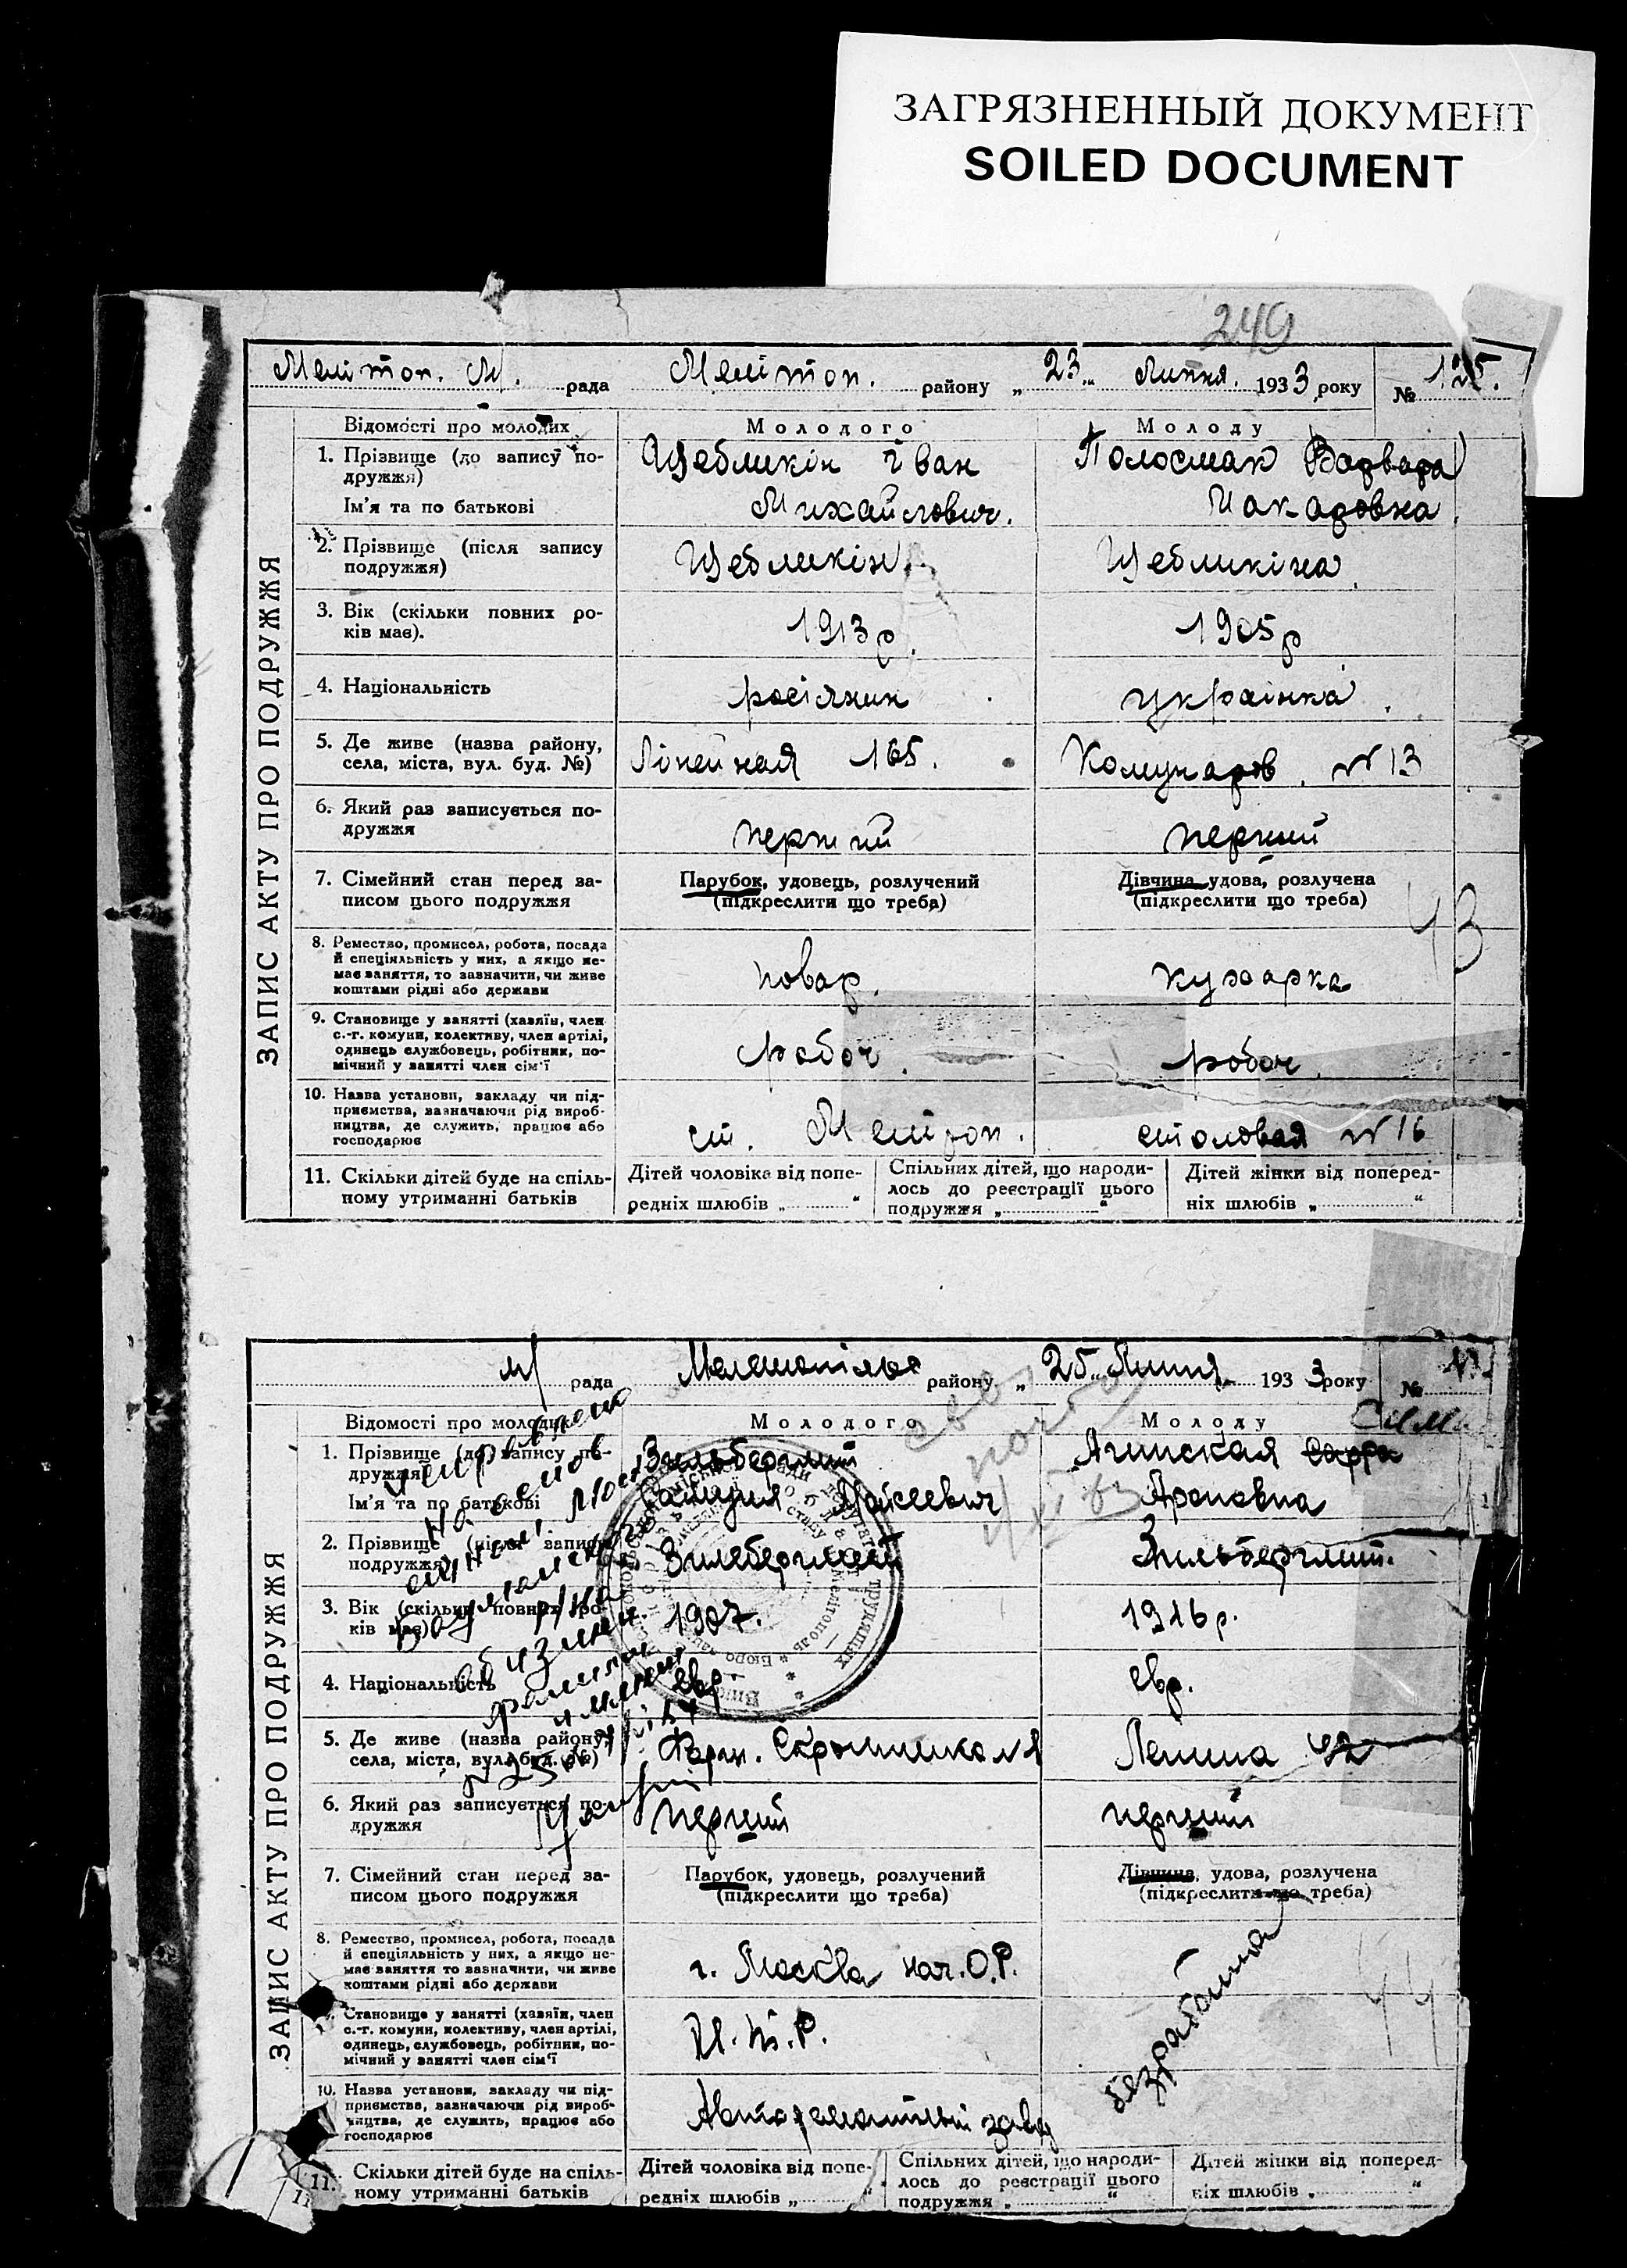 ЗАГРЯЗНЕННЫЙ ДОКУМЕНТ
SOILED DOCUMENT
249
Меліtоп. М. рада Меліtоп. району „23„ Липня. 1933 року № 125.
ЗАПИС АКТУ ПРО ПОДРУЖЖЯ
Відомості про молодих
Молодого
Молоду
1. Прізвище (до запису по-
дружжя)
Ім'я та по батькові
Щебликін Іван
Михайлович.
Полосмак Варвара
Макаровна
2. Прізвище (після запису
подружжя)
Щебликін
Щебликіна
3. Вік (скільки повних ро-
ків має).
1913 р.
1905 р
4. Національність
росіянин
українка
5. Де живе (назва району,
села, міста, вул. буд. №)
Лінейная 165.
Комунаров № 13
6. Який раз записується по-
дружжя
перший
перший
7. Сімейний стан перед за-
писом цього подружжя
Парубок, удовець, розлучений
(підкреслити що треба)
Дівчина, удова, розлучена
(підкреслити що треба)
43
8. Ремество, промисел, робота, посада
й спеціяльність у них, а якщо не-
має заняття, то зазначити, чи живе
коштами рідні або держави
повар.
кухарка
9. Становище у занятті (хазяїн, член
с.-г. комуни, колективу, член артілі,
одинець службовець, робітник, по-
мічний у занятті член сім'ї
робоч.
робоч.
10. Назва установи, закладу чи під-
приємства, зазначаючи рід вироб-
ництва, де служить, працює або
господарює
ст. Меліtоп.
столовая № 16
11. Скільки дітей буде на спіль-
ному утриманні батьків
Дітей чоловіка від попе-
редніх шлюбів „ “
Спільних дітей, що народи-
лось до реєстрації цього
подружжя „ “
Дітей жінки від поперед-
ніх шлюбів „ “
м/ рада району „25„ Липня 1933 року №
ЗАПИС АКТУ ПРО ПОДРУЖЖЯ
Відомості про молодих
Молодого
Молоду
1. Прізвище (до запису по-
дружжя)
Ім'я та по батькові
Зильберглит
Мойсеевич
Агинская Сарра
Ароновна
2. Прізвище (після запису
подружжя)
Зильберглит
Зильберглит.
3. Вік (скільки повних ро-
ків має)
1907.
1916 р.
4. Національність
евр.
евр.
5. Де живе (назва району,
села, міста, вул. буд. №)
Ленина 42
6. Який раз записується по-
дружжя
перший
перший
7. Сімейний стан перед за-
писом цього подружжя
Парубок, удовець, розлучений
(підкреслити що треба)
Дівчина, удова, розлучена
(підкреслити що треба)
8. Ремество, промисел, робота, посада
й спеціяльність у них, а якщо не-
має заняття то зазначити, чи живе
коштами рідні або держави
г. Москва нач. О.Р.
безработна
44
Становище у занятті (хазяїн, член
с.-г. комуни, колективу, член артілі,
одинець, службовець, робітник, по-
мічний у занятті член сім'ї
И.Т.Р.
10. Назва установи, закладу чи під-
приємства, зазначаючи рід вироб-
ництва, де служить, працює або
господарює
Авторемонтный завод
11. Скільки дітей буде на спіль-
ному утриманні батьків
Дітей чоловіка від попе-
редніх шлюбів „ “
Спільних дітей, що народи-
лось до реєстрації цього
подружжя „ “
Дітей жінки від поперед-
ніх шлюбів „ “